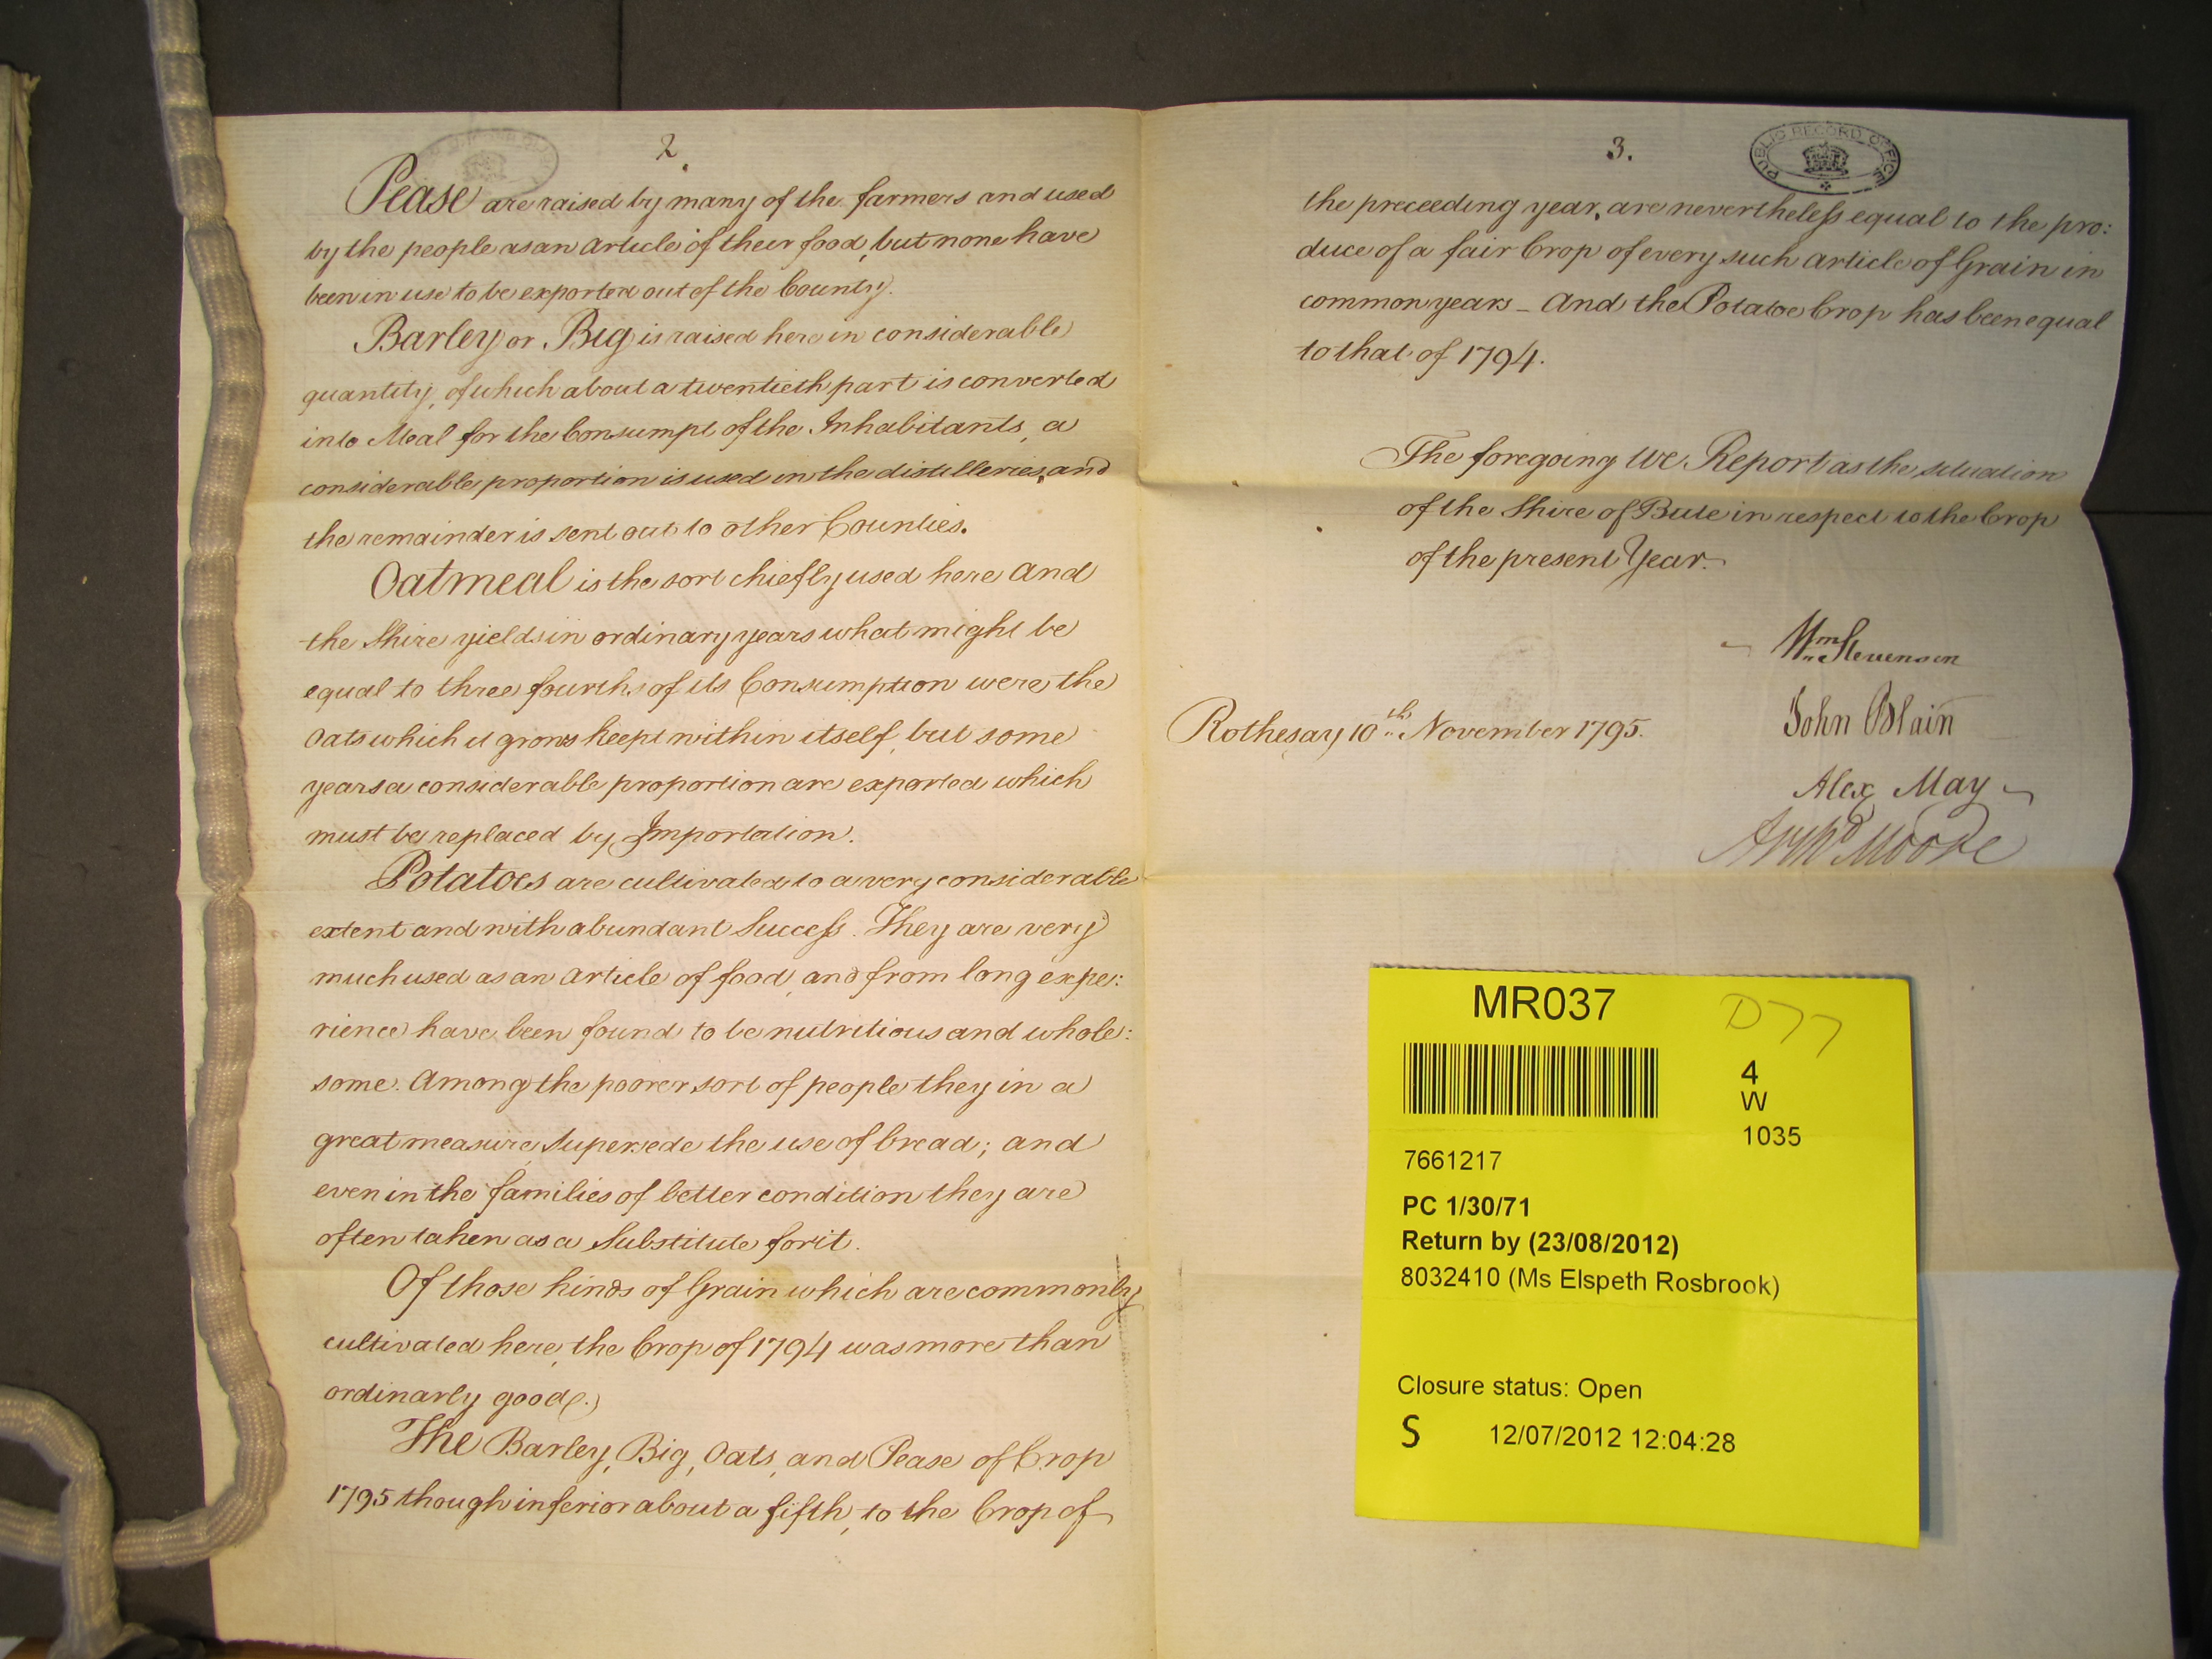 2
Pease are raised by many of the farmers and used
by the people as an article of their food, but none have
been in use to be exported out of the County.
Barley or Big is raised here in considerable
quantity, of which about a twentieth part is converted
into Meal for the Consumpt of the Inhabitants, a
considerable proportion is used in the distilleries, and
the remainder is sent out to other Counties.
Oatmeal is the sort chiefly used here and
the Shire yields in ordinary years what might be
equal to three fourths of its Consumption were the
Oats which it grows keept within itself, but some
years a considerable proportion are exported which
must be replaced by Importation.
Potatoes are cultivated to a very considerable
extent and with abundant Success. They are very
much used as an article of food, and from long expe:
rience have been found to be nutritious and whole:
some. Among the poorer sort of people they in a
great measure Supersede the use of bread; and
even in the families of better condition they are
often taken as a Substitute for it.
Of those kinds of Grain which are commonly
cultivated here, the Crop of 1794 was more than
ordinarly good.
The Barley, Big, Oats, and Pease of Crop
1795 though inferior about a fifth, to the Crop of
3.
PUBLIC RECORD OFFICE
the preceeding year, are nevertheless equal to the pro:
duce of a fair Crop of every such article of Grain in
common years - And the Potatoe Crop has been equal
to that of 1794.
The foregoing We Report as the situation
of the Shire of Bute in respect to the Crop
of the present Year.
Wm Stevenson
Rothesay 10th November 1795.
John Blain
Alex May
Archd Moore
MR037
D77
4
W
1035
7661217
PC 1/30/71
Return by (23/08/2012)
8032410 (Ms Elspeth Rosbrook)
Closure status: Open
S 12/07/2012 12:04:28